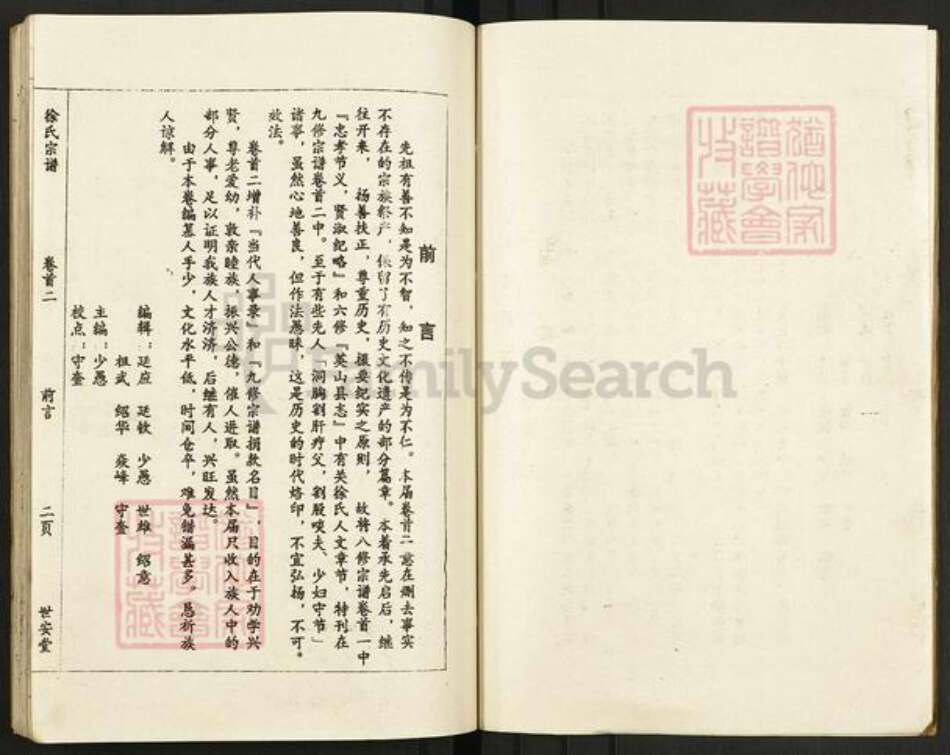 前言
先祖有善不知是为不智，知之不传是为不仁。本届卷首二意在删去事实
不存在的宗族祭产，保留了有历史文化遗产的部分篇章。本着承先启后，继
往开来，扬善扶正，尊重历史，撮要纪实之原则，故将八修宗谱卷首一中
『忠孝节义，贤淑纪略』和六修『英山县志』中有关徐氏人文章节，特刊在
九修宗谱卷首二中。至于有些先人「洞胸割肝疗父，割股啖夫、少妇守节」
诸事，虽然心地善良，但作法愚昧，这是历史的时代烙印，不宜弘扬，不可
效法。
卷首二增补『当代人事录』和『九修宗谱捐款名目』，目的在于劝学兴
贤，尊老爱幼，敦亲睦族，振兴公德，催人进取。虽然本届只收入族人中的
部分人事，足以证明我族人才济济，后继有人，兴旺发达。
由于本卷编纂人手少，文化水平低，时间仓卒，难免错漏甚多。恳祈族
人谅解。
编辑：延应 延钦 少愚 世雄 绍意
祖武 绍华 焱峰 守奎
主编：少愚
校点：守奎
徐氏宗谱 卷首二 前言 二页 世安堂
猶他家
譜學會
收藏
猶他家
譜學會
收藏
FamilySearch